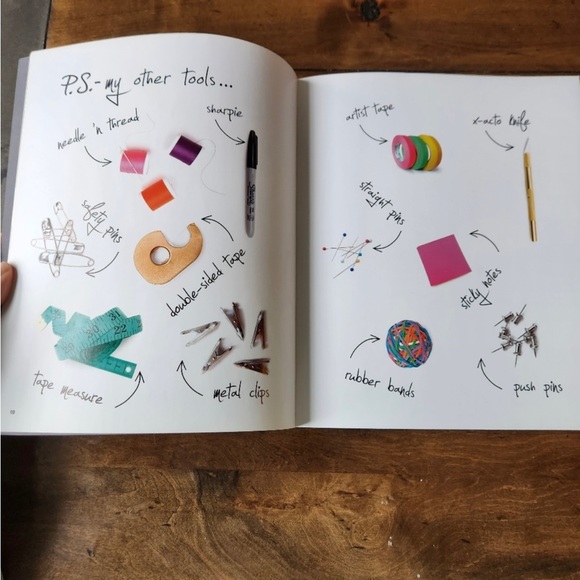 P.S.-my other tools...
needle 'n thread
sharpie
safety pins
double-sided tape
31
22
tape measure
metal clips
artist tape
x-acto knife
straight pins
sticky notes
rubber bands
push pins